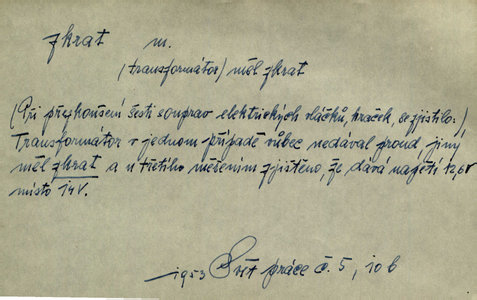 zkrat m.
(transformátor) měl zkrat
(Při přezkoušení šesti souprav elektrických vláčků, hraček, se zjistilo:)
Transformátor v jednom případě vůbec nedával proud, jiný
měl zkrat a u třetího měřením zjištěno, že dává napětí 12,6V
místo 14V.
1953 Svět práce č. 5, 10b